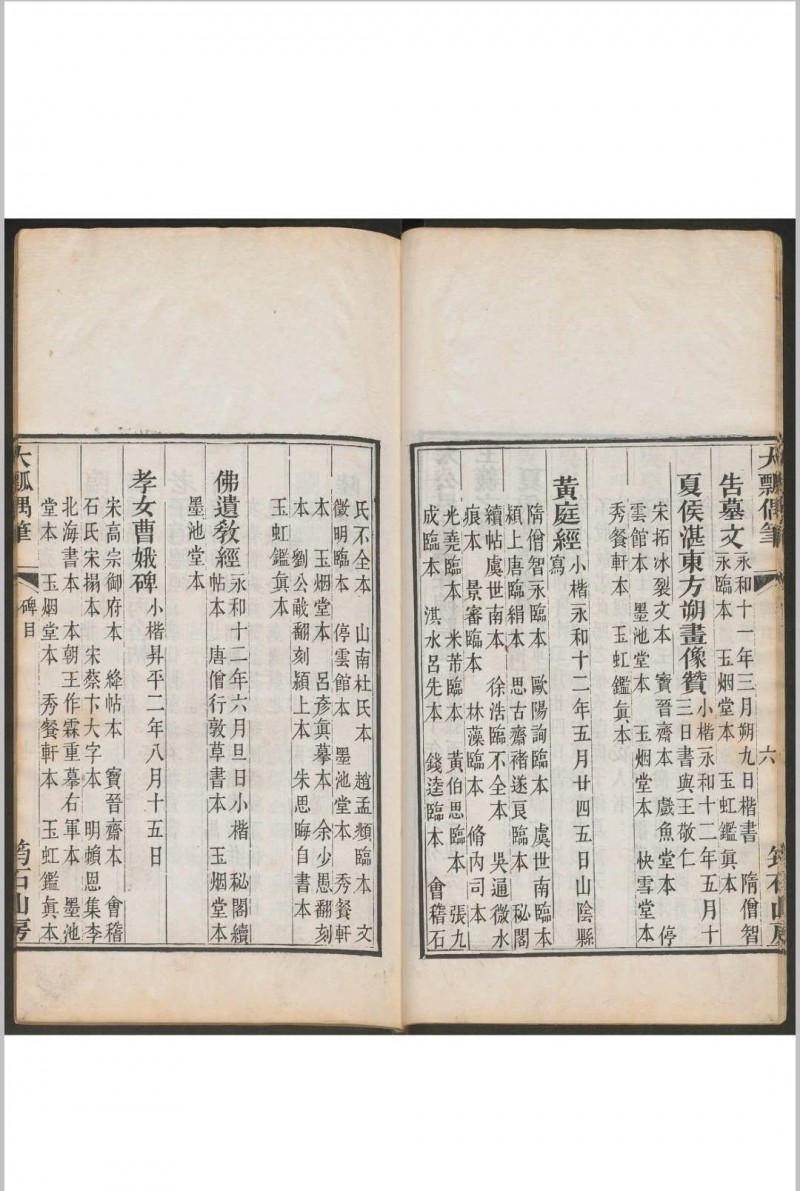 大瓢偶筆
六
筠石山房
告墓文永和十一年三月朔九日楷書 隋僧智
永臨本 玉烟堂本 玉虹鑑真本
夏侯湛東方朔畫像贊小楷永和十二年五月十
三日書與王敬仁
宋拓冰裂文本 寶晉齋本 戲魚堂本 停
雲館本 墨池堂本 玉烟堂本 快雪堂本
秀餐軒本 玉虹鑑真本
黃庭經小楷永和十二年五月廿四五日山陰縣
寫
隋僧智永臨本 歐陽詢臨本 虞世南臨本
潁上唐臨絹本 思古齋褚遂良臨本 秘閣
續帖虞世南本 徐浩臨不全本 吳通微水
痕本 景審臨本 林藻臨本 脩內司本
光堯臨本 米芾臨本 黃伯思臨本 張九
成臨本 淇水呂先本 錢逵臨本 會稽石
氏不全本 山南杜氏本 趙孟頫臨本 文
徵明臨本 停雲館本 墨池堂本 秀餐軒
本 玉烟堂本 呂彥真摹本 余少愚翻刻
本 劉公㦷翻刻潁上本 朱思晦自書本
玉虹鑑真本
佛遺教經永和十二年六月旦日小楷 秘閣續
帖本 唐僧行敦草書本 玉烟堂本
墨池堂本
孝女曹娥碑小楷昇平二年八月十五日
宋高宗御府本 絳帖本 寶晉齋本 會稽
石氏宋搨本 宋蔡卞大字本 明賴恩集李
北海書本 本朝王作霖重摹右軍本 墨池
堂本 玉烟堂本 秀餐軒本 玉虹鑑真本
大瓢偶筆
碑目
筠石山房